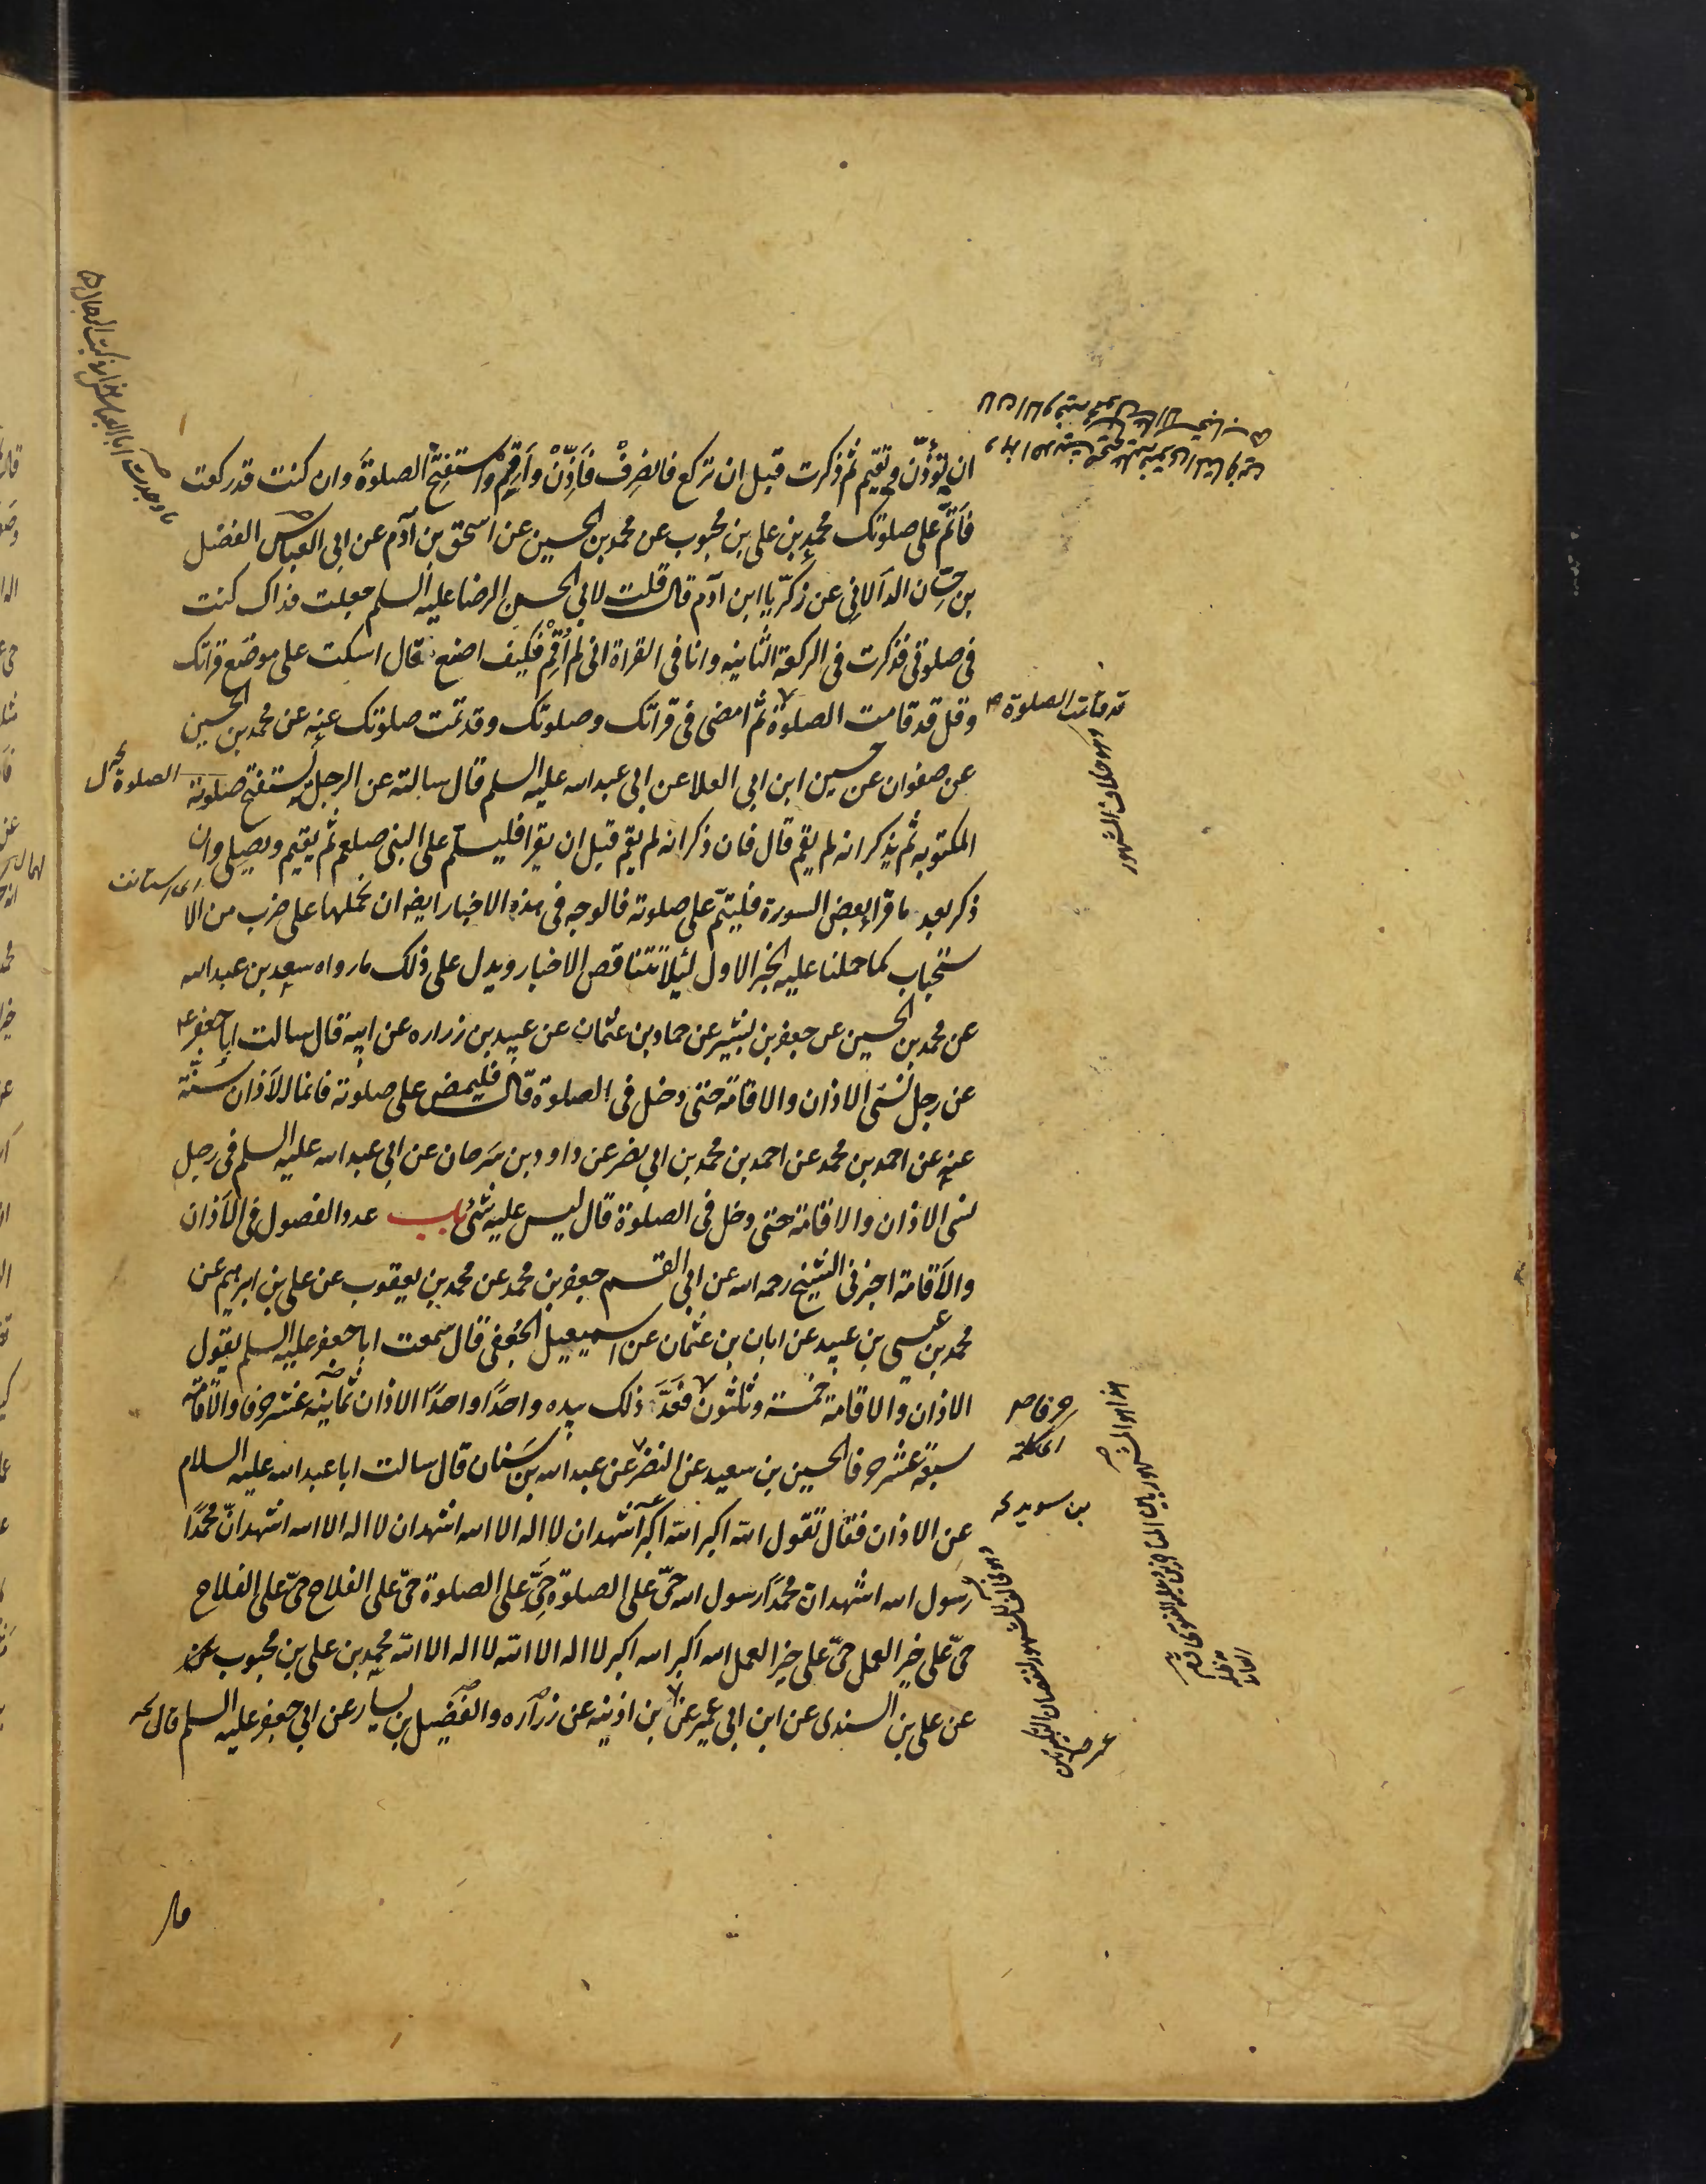 ان تؤذّن وتقيم ثم ذكرت قبل ان تركع فانصرِفْ فَاَذِّنْ واَقِمْ واستفتح الصلوةَ وان كنت قد ركعت
فاَتمّ على صلوتك محمد بن على بن محبوب عن محمد بن الحسين عن اسحق بن آدم عن ابى العباس الفضل
بن حسّان الدالانى عن زكريّا ابن آدم قال قلت لابى الحسين الرضا عليه السلم جعلت فداك كنت
فى صلوتى فذكرت فى الركعة الثانيه وانا فى القراة انى لم اُقِمْ فكيف اصنع قال اسكت على موضع قراتك
وقل قد قامت الصلوة ثم امضى فى قراتك وصلوتك وقد تمت صلوتك عنه عن محمد بن الحسين
عن صفوان عن حسين ابن ابى العلا عن ابى عبد الله عليه السلم قال سالته عن الرجل يستفتح صلوته
المكتوبه ثم يذكر انه لم يقم قال فان ذكر انه لم يقم قبل ان يقرا فليسلّم على النبى صلعم ثم يقيم ويصلى وان
ذكر بعد ما قرأ بعض السورة فليتمّ على صلوته فالوجه فى هذه الاخبار ايضا ان نحملها على ضرب من الا
ستحباب كما حملنا عليه الخبر الاول لئيلا تتناقض الاخبار ويدل على ذلك ما رواه سعد بن عبد الله
عن محمد بن الحسين عن جعفر بن بشير عن حماد بن عثمان عن عبيد بن زراره عن ابيه قال سالت ابا جعفر ع
عن رجل نسَى الاذان والاقامة حتى دخل فى الصلوة قال فليمض على صلوته فانما الاذان سنّة
عنه عن احمد بن محمد عن احمد بن محمد بن ابى نصر عن داود بن سَرحان عن ابى عبد الله عليه السلم فى رجل
نسى الاذان والاقامة حتى دخل فى الصلوة قال ليس عليه شئ باب عدد الفصول فى الاَذان
والاَقامة اخبرنى الشيخ رحمه الله عن ابى القسم جعفر بن محمد عن محمد بن يعقوب عن على بن ابرهيم عن
محمد بن عيسى بن عبيد عن ابان بن عثمان عن اسمعيل الجُعفى قال سمعت ابا جعفر عليه السلم يقول
الاذان والاقامة خمسة وثلثون فَعَدَّ ذلك بيده واحدًا واحدًا الاذان ثمانيه عشر حرفا والاقامة
سبعة عشر حرفا الحسين بن سعيد عن النضر عن عبد الله بن سَنان قال سالت ابا عبد الله عليه السلام
عن الاذان فقال تقول الله اكبر الله اكبر اشهد ان لا اله الا الله اشهد ان لا اله الا الله اشهد انّ محمّدًا
رسول الله اشهد ان محمّدًا رسول الله حىّ على الصلوة حىَّ على الصلوة حىّ على الفلاح حىّ على الفلاح
حىّ على خير العمل حىّ على خير العمل الله اكبر الله اكبر لا اله الا الله لا اله الا الله محمد بن على بن محبوب
عن على بن السندى عن ابن ابى عمير عن بن اذينه عن زراره والفضيل بن يسار عن ابى جعفر عليه السلم قال
قد قامت الصلوة
وهو خلاف المشهور
الصلوة
بن سويد